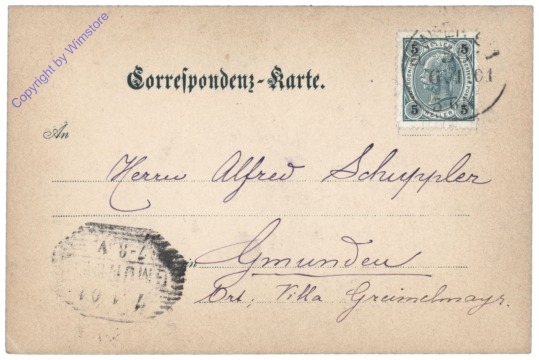 Copyright by Wimstore
Correspondenz-Karte.
5 5
5 5
An
Herrn Alfred Schuppler
in
Gmunden
Ort, Villa Greimelmayr.